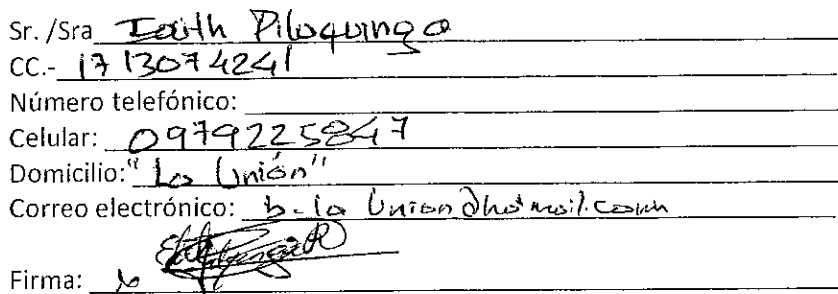 Sr. /Sra Edith Pilaquinga
CC.- 1713074241
Número telefónico:
Celular: 0979225847
Domicilio: "La Unión"
Correo electrónico: b-la Union@hotmail.com
Firma: